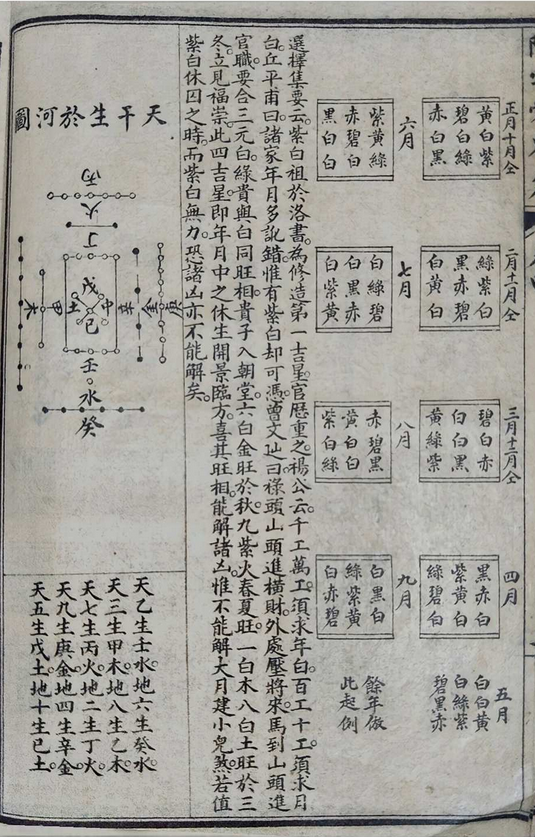 正月十月仝
黃白紫
碧白綠
赤白黑
二月十一月仝
綠紫白
黑赤碧
白黃白
三月十二月仝
碧白赤
白白黑
黃綠紫
四月
黑赤白
紫黃白
綠碧白
五月
白白黃
白綠紫
碧黑赤
六月
紫黃綠
赤碧白
黑白白
七月
白綠碧
白黑赤
白紫黃
八月
赤碧黑
黃白白
紫白綠
九月
白黑白
綠紫黃
白赤碧
餘年倣
此起例
選擇集要云。紫白祖於洛書。為修造第一吉星。官歷重之。楊公云。千工萬工。須求年白。百工十工。須求月
白。丘平甫曰。諸家年月多訛錯。惟有紫白却可馮。曾文辿曰。祿頭山頭進橫財。外處壓將來。馬到山頭進
官職。要合三元白。綠貴與白同旺相。貴子入朝堂。六白金旺於秋。九紫火春夏旺。一白木八白土旺於三
冬。立見福崇。此四吉星。即年月中之休生開景臨方。喜其旺相。能解諸凶。惟不能解大月建小兒煞。若值
紫白休囚之時。而紫白無力。恐諸凶亦不能解矣。
天干生於河圖
丙
火
丁
戊
己
乙
木
甲
辛
金
庚
壬
水
癸
天乙生壬水。地六生癸水。
天三生甲木。地八生乙木。
天七生丙火。地二生丁火。
天九生庚金。地四生辛金。
天五生戊土。地十生已土。